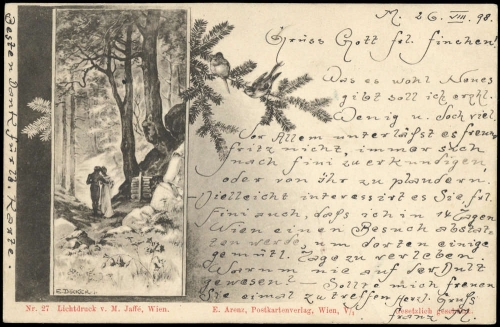 M. 26. VIII. 98.
Grüss Gott frl. finchen!
Was es wohl Neues
gibt soll ich erzhl.
Wenig u. doch viel.
Vor Allem unterläßt es freund
fritz nicht, immer
nach fini zu erkundigen,
oder von ihr zu plaudern.
Vielleicht interessirt es Sie frl.
fini auch, daß ich in 14 Tagen
Wien einen Besuch abstat-
ten werde, um dorten einige
gemütl. Tage zu verleben.
Warum nie auf der Dult
gewesen! – Sollte mich freuen
Sie einmal zu treffen Herzl. Gruss
franz M.
Besten Dank für lb. Karte.
Nr. 27 Lichtdruck v. M. Jaffé, Wien.
E. Arenz, Postkartenverlag, Wien, V/1
Gesetzlich geschützt.